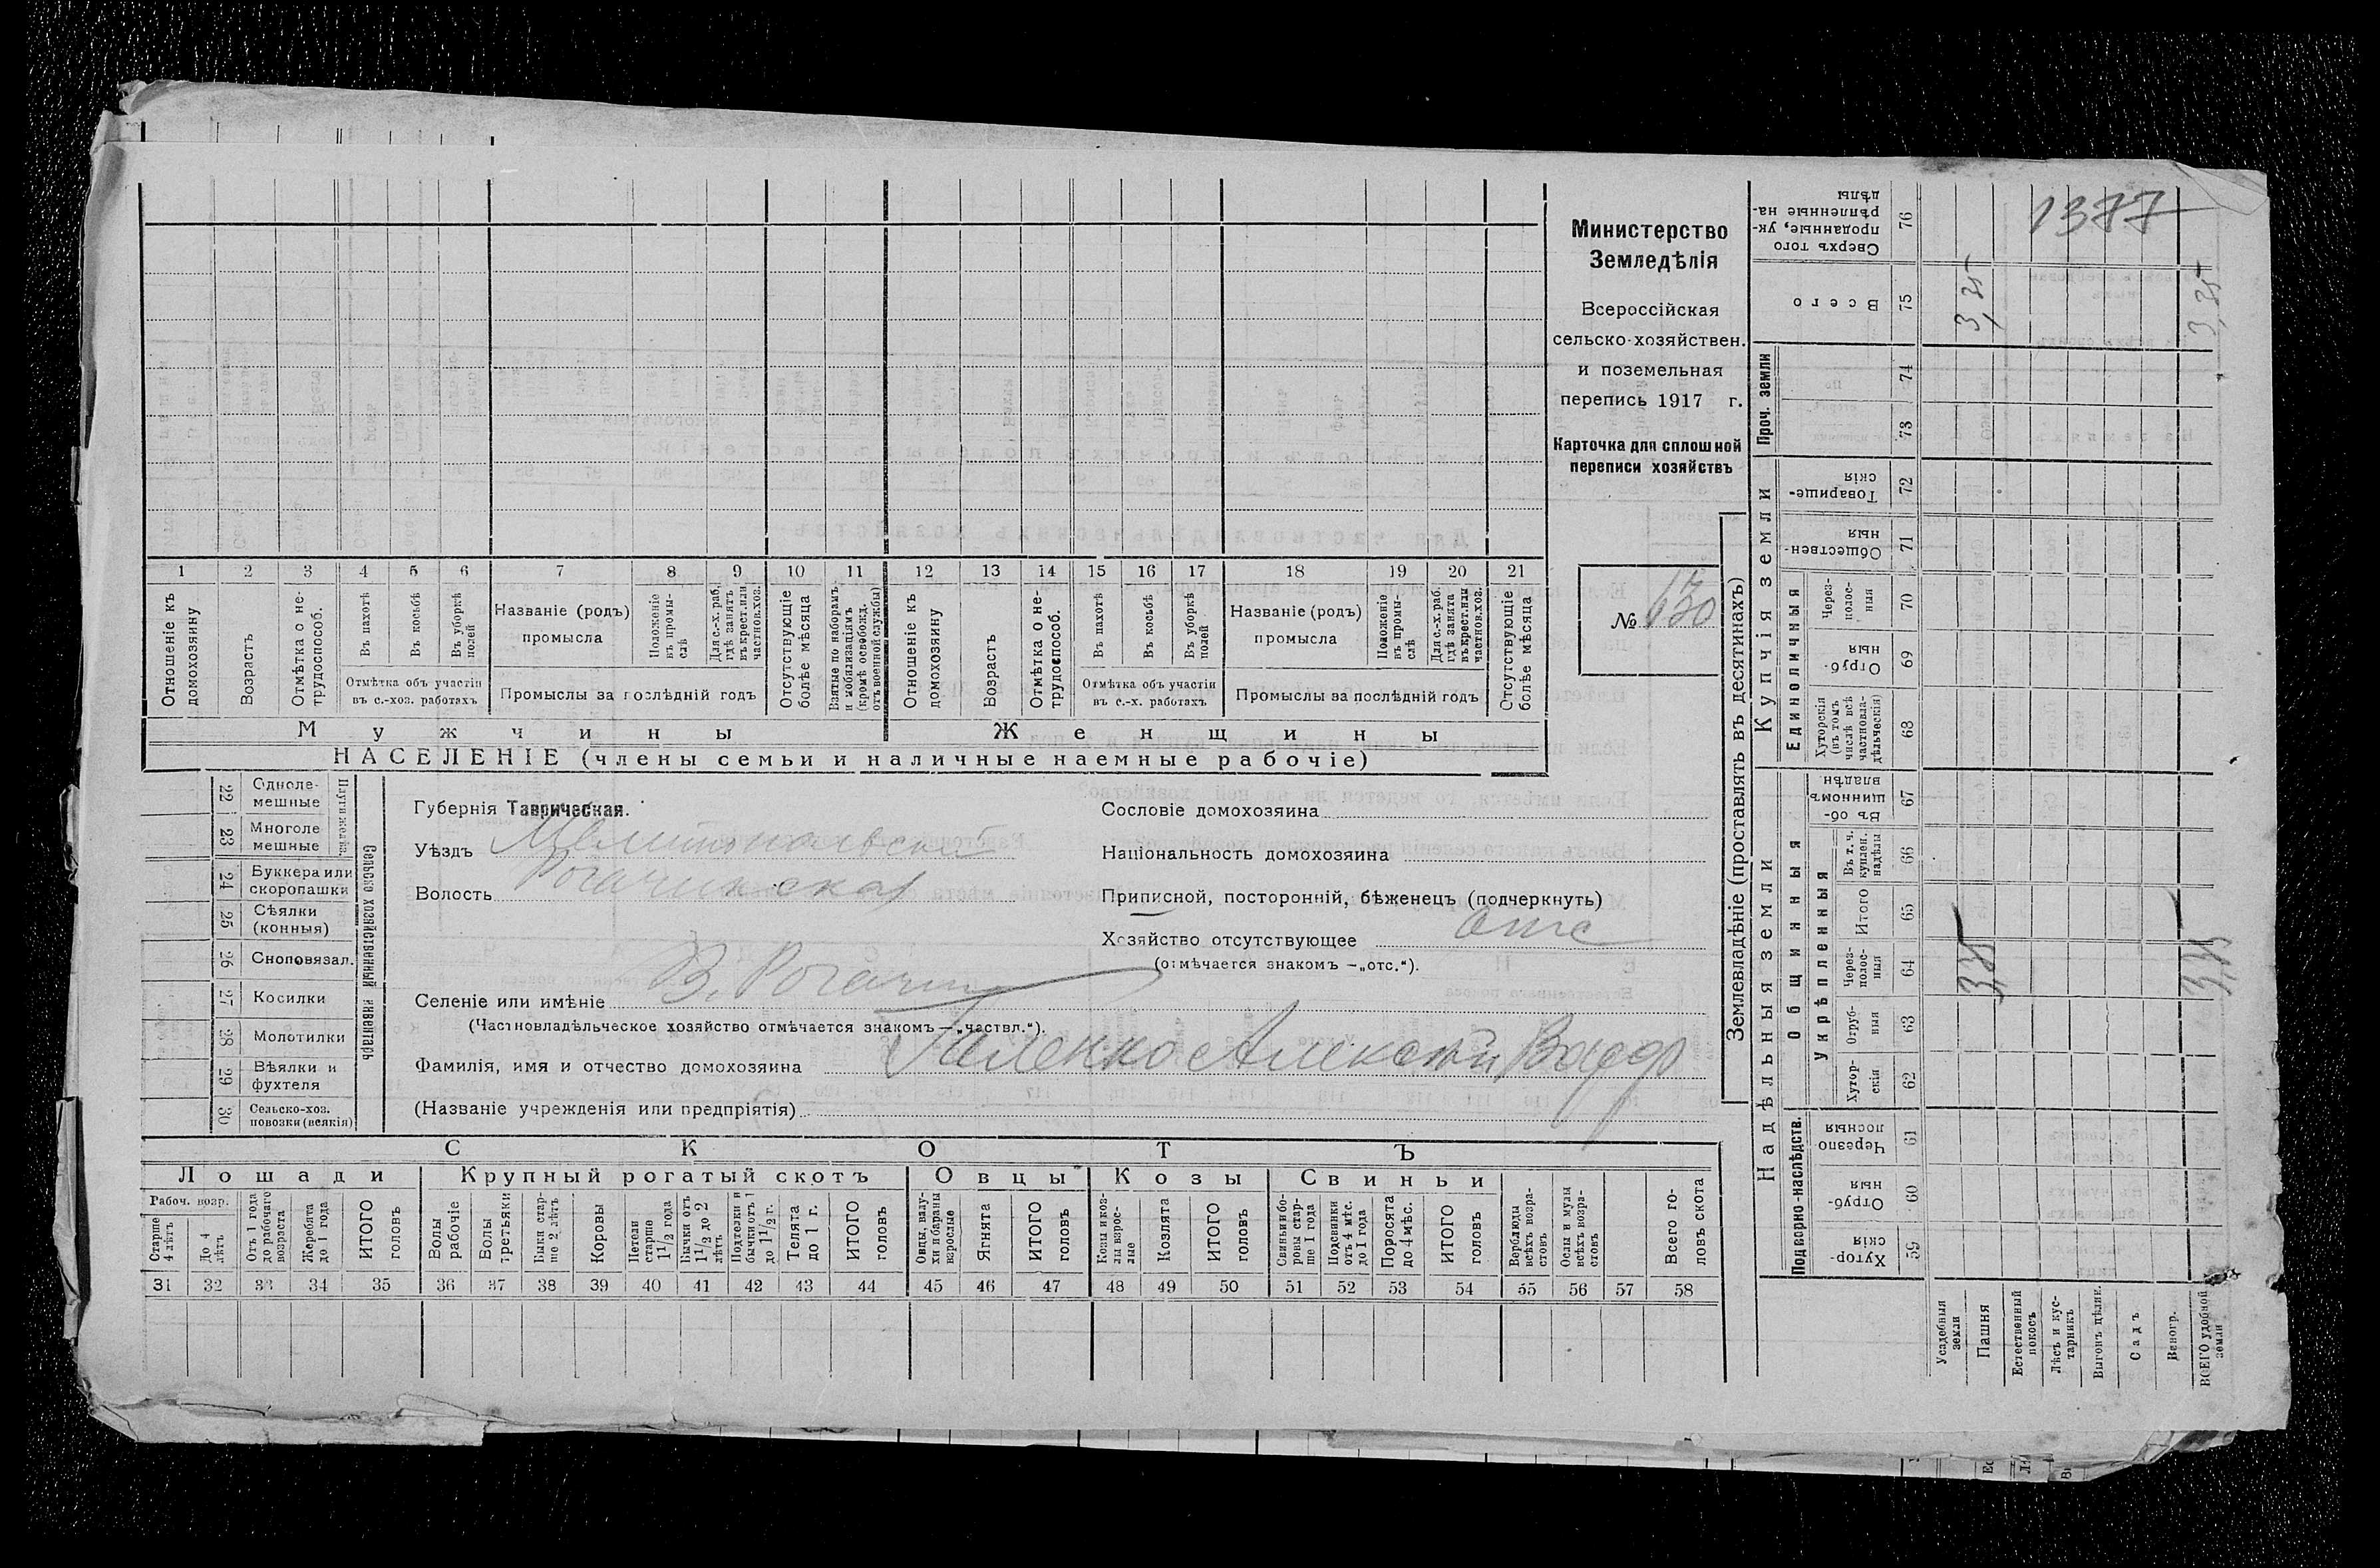 Министерство
Земледѣлія
Всероссійская
сельско-хозяйствен.
и поземельная
перепись 1917 г.
Карточка для сплошной
переписи хозяйствъ
№ 130
1377
1 2 3 4 5 6 7 8 9 10 11 12 13 14 15 16 17 18 19 20 21
Отношеніе къ домохозяину
Возрастъ
Отмѣтка о нетрудоспособ.
Въ пахотѣ
Въ косьбѣ
Въ уборкѣ полей
Отмѣтка объ участіи
въ с.-хоз. работахъ
Названіе (родъ)
промысла
Положеніе въ промыслѣ
Для с.-х. раб. гдѣ занятъ въ крест. или частнов. хоз.
Промыслы за послѣдній годъ
Отсутствующіе болѣе мѣсяца
Взятые по наборамъ и мобилизаціямъ (кромѣ освобожд. отъ военной службы)
Отношеніе къ домохозяину
Возрастъ
Отмѣтка о нетрудоспособ.
Въ пахотѣ
Въ косьбѣ
Въ уборкѣ полей
Отмѣтка объ участіи
въ с.-х. работахъ
Названіе (родъ)
промысла
Положеніе въ промыслѣ
Для с.-х. раб. гдѣ занята въ крест. или частнов. хоз.
Промыслы за послѣдній годъ
Отсутствующіе болѣе мѣсяца
Мужчины
Женщины
НАСЕЛЕНІЕ (члены семьи и наличные наемные рабочіе)
22 Однолемешные
23 Многолемешные
24 Буккера или скоропашки
25 Сѣялки (конныя)
26 Сноповязал.
27 Косилки
28 Молотилки
29 Вѣялки и фухтеля
30 Сельско-хоз. повозки (всякія)
Сельско хозяйственный инвентарь
Губернія Таврическая.
Уѣздъ Мелитопольскій
Волость Рогачинская
Селеніе или имѣніе В. Рогачик
(Частновладѣльческое хозяйство отмѣчается знакомъ—„частвл.“).
Фамилія, имя и отчество домохозяина Алексѣй
(Названіе учрежденія или предпріятія)
Сословіе домохозяина
Національность домохозяина
Приписной, посторонній, бѣженецъ (подчеркнуть)
Хозяйство отсутствующее отс
(отмѣчается знакомъ —„отс.“).
СКОТЪ
Лошади Крупный рогатый скотъ Овцы Козы Свиньи
Рабоч. возр.
Старше 4 лѣтъ
До 4 лѣтъ
Отъ 1 года до рабочаго возраста
Жеребята до 1 года
ИТОГО головъ
Волы рабочіе
Волы третьяки
Быки старше 2 лѣтъ
Коровы
Нетели старше 1 1/2 года
Бычки отъ 1 1/2 до 2 лѣтъ
Подтелки и бычки отъ 1 до 1 1/2 г.
Телята до 1 г.
ИТОГО головъ
Овцы, валухи и бараны взрослые
Ягнята
ИТОГО головъ
Козы и козлы взрослые
Козлята
ИТОГО головъ
Свиньи и боровы старше 1 года
Подсвинки отъ 4 мѣс. до 1 года
Поросята до 4 мѣс.
ИТОГО головъ
Верблюды всѣхъ возрастовъ
Ослы и мулы всѣхъ возрастовъ
Всего головъ скота
31 32 33 34 35 36 37 38 39 40 41 42 43 44 45 46 47 48 49 50 51 52 53 54 55 56 57 58
Землевладѣніе (проставлять въ десятинахъ)
Надѣльныя земли
Купчія земли
Проч. земли
Подворно-наслѣдств.
Общинныя
Укрѣпленныя
Единоличныя
59 Хуторскія
60 Отрубныя
61 Черезполосныя
62 Хуторскія
63 Отрубныя
64 Черезполосныя
65 Итого
66 Въ т. ч. куплен. надѣлы
67 Въ общинномъ владѣн.
68 Хуторскія (въ томъ числѣ всѣ частновладѣльческія)
69 Отрубныя
70 Черезполосныя
71 Общественныя
72 Товарищескія
73
74
75 Всего
76 Сверхъ того проданные, укрѣпленные надѣлы
Усадебныя земли
Пашня
Естественный покосъ
Лѣсъ и кустарникъ
Выгонъ цѣлин.
Садъ
Виногр.
ВСЕГО удобной земли
3,25
3,25
3,25
3,25